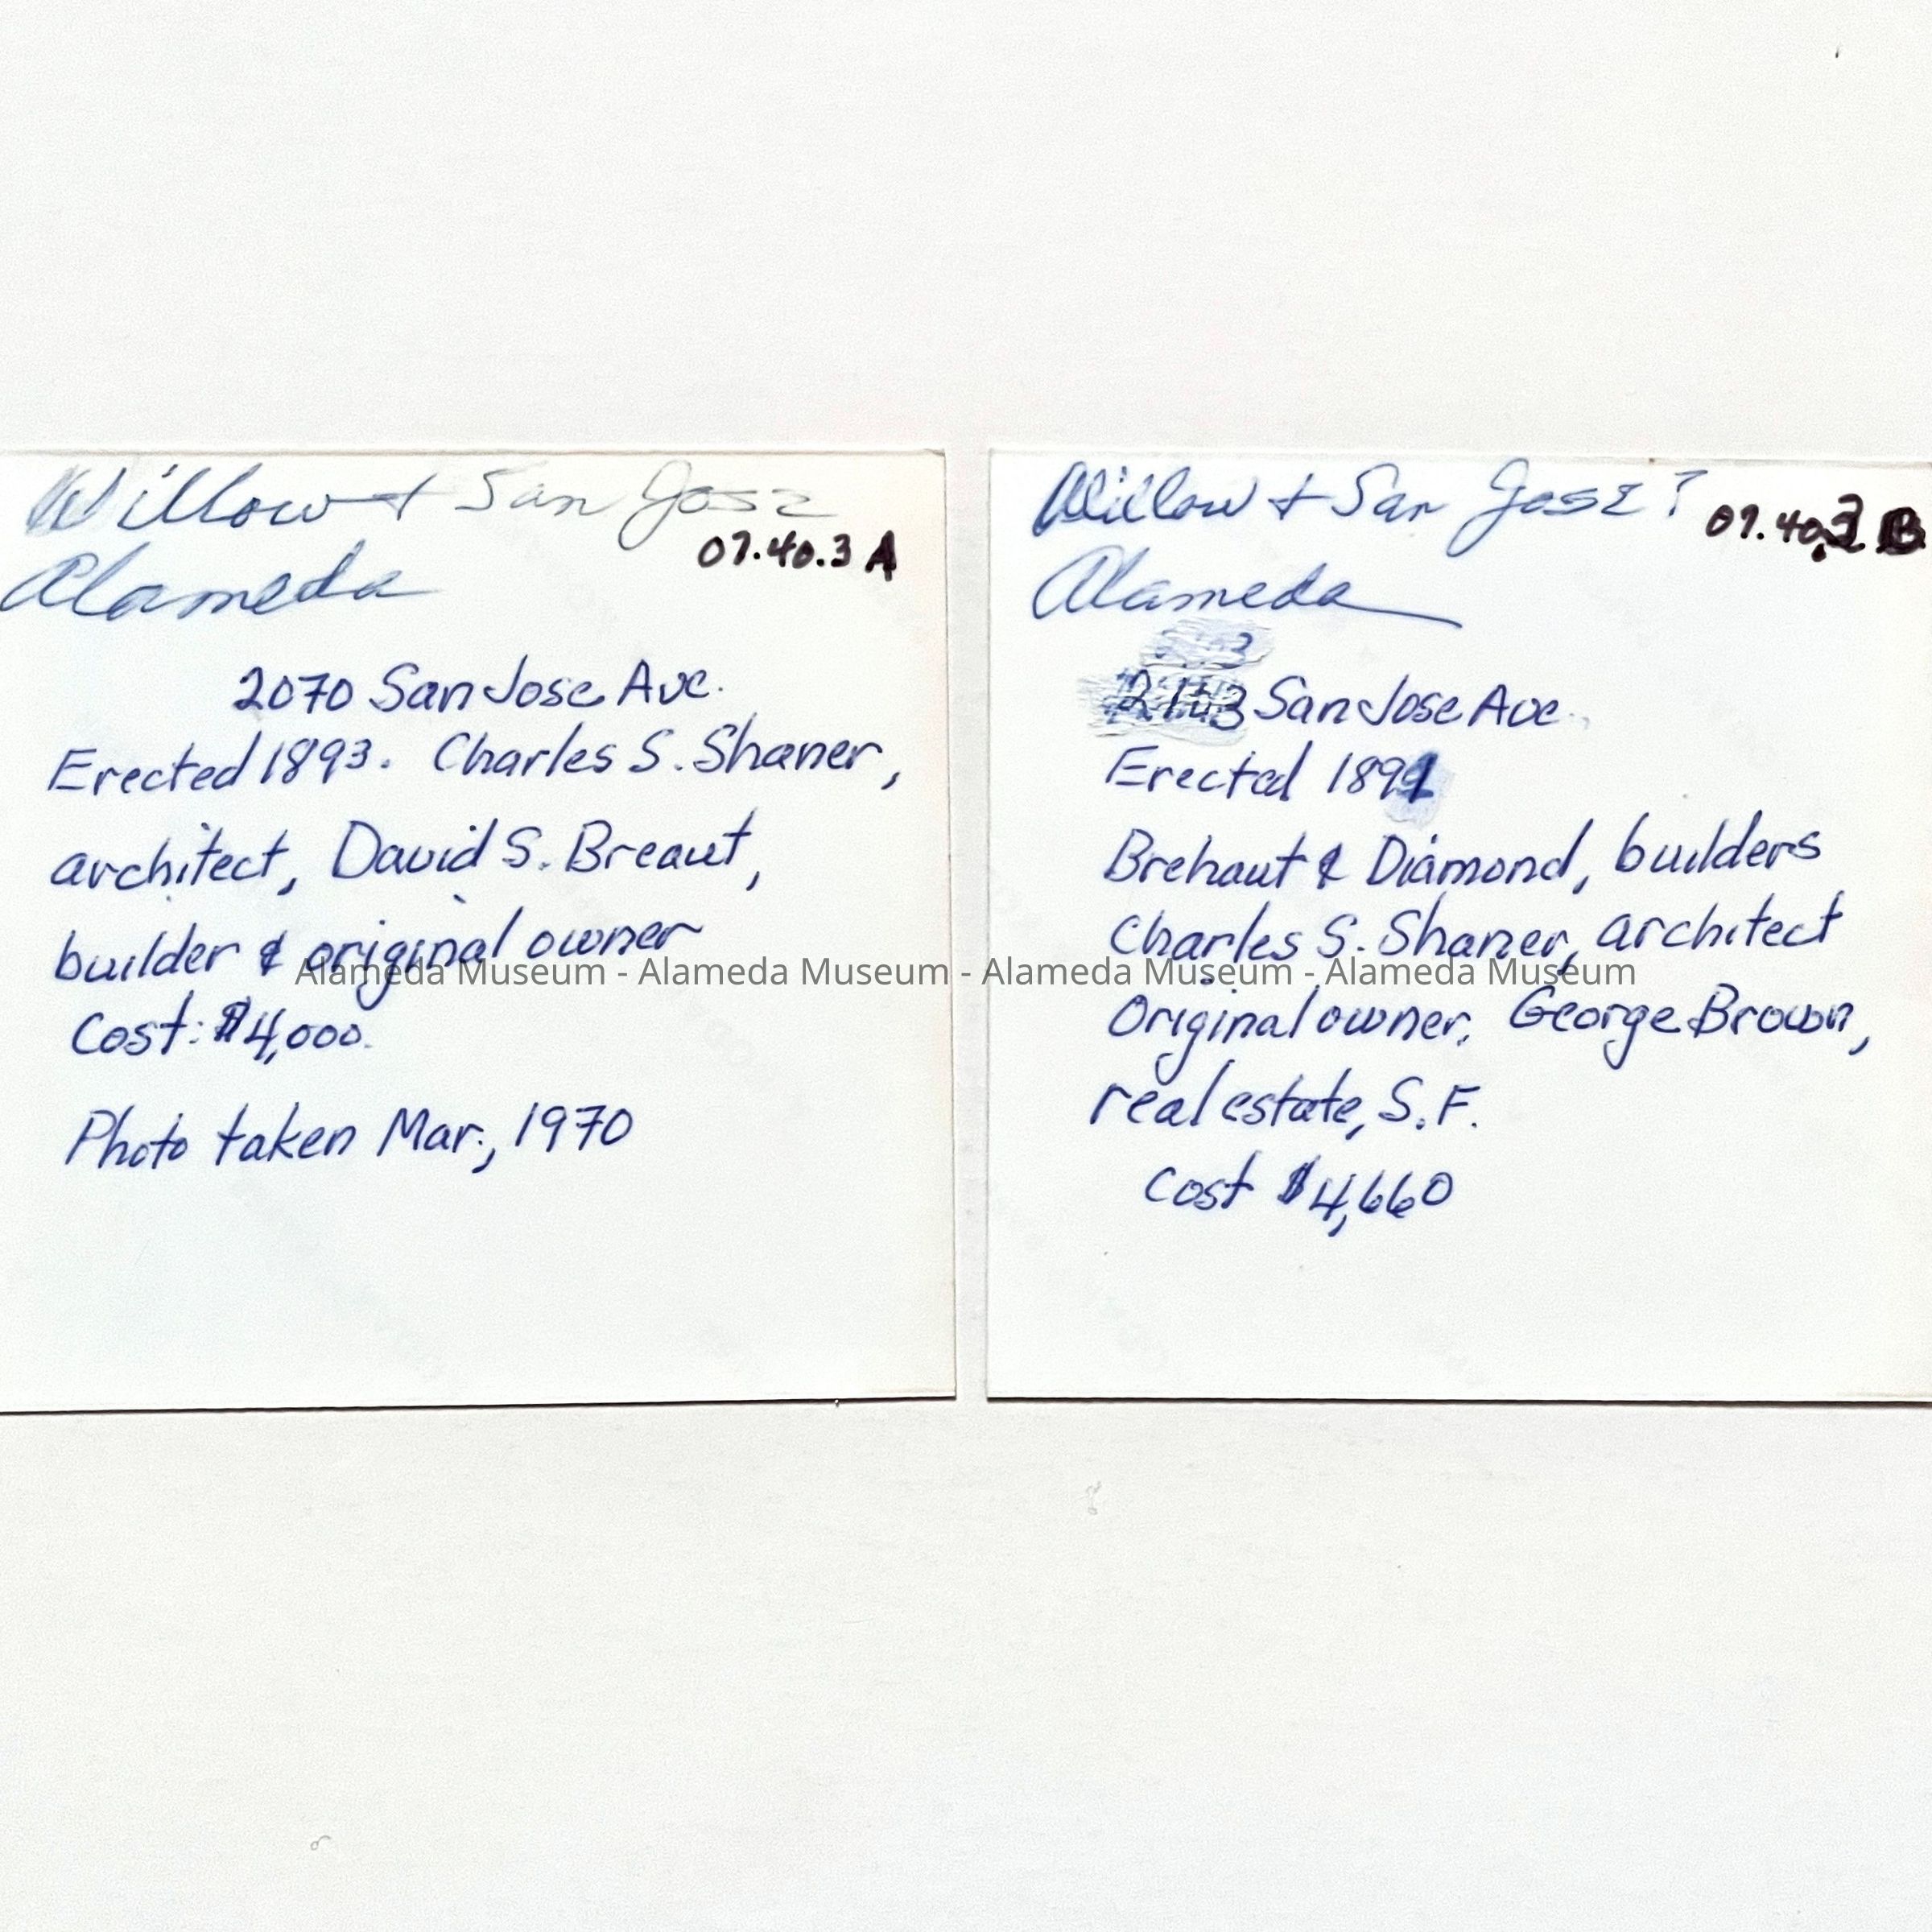 Willow + San Jose
07.40.3 A
Alameda
2070 San Jose Ave.
Erected 1893. Charles S. Shaner,
architect, David S. Breaut,
builder & original owner
Cost: $4,000.
Photo taken Mar., 1970
Willow + San Jose?
07.40.3 B
Alameda
San Jose Ave.
Erected 1891
Brehaut & Diamond, builders
Charles S. Shaner, architect
Original owner, George Brown,
real estate, S.F.
Cost $4,660
Alameda Museum - Alameda Museum - Alameda Museum - Alameda Museum